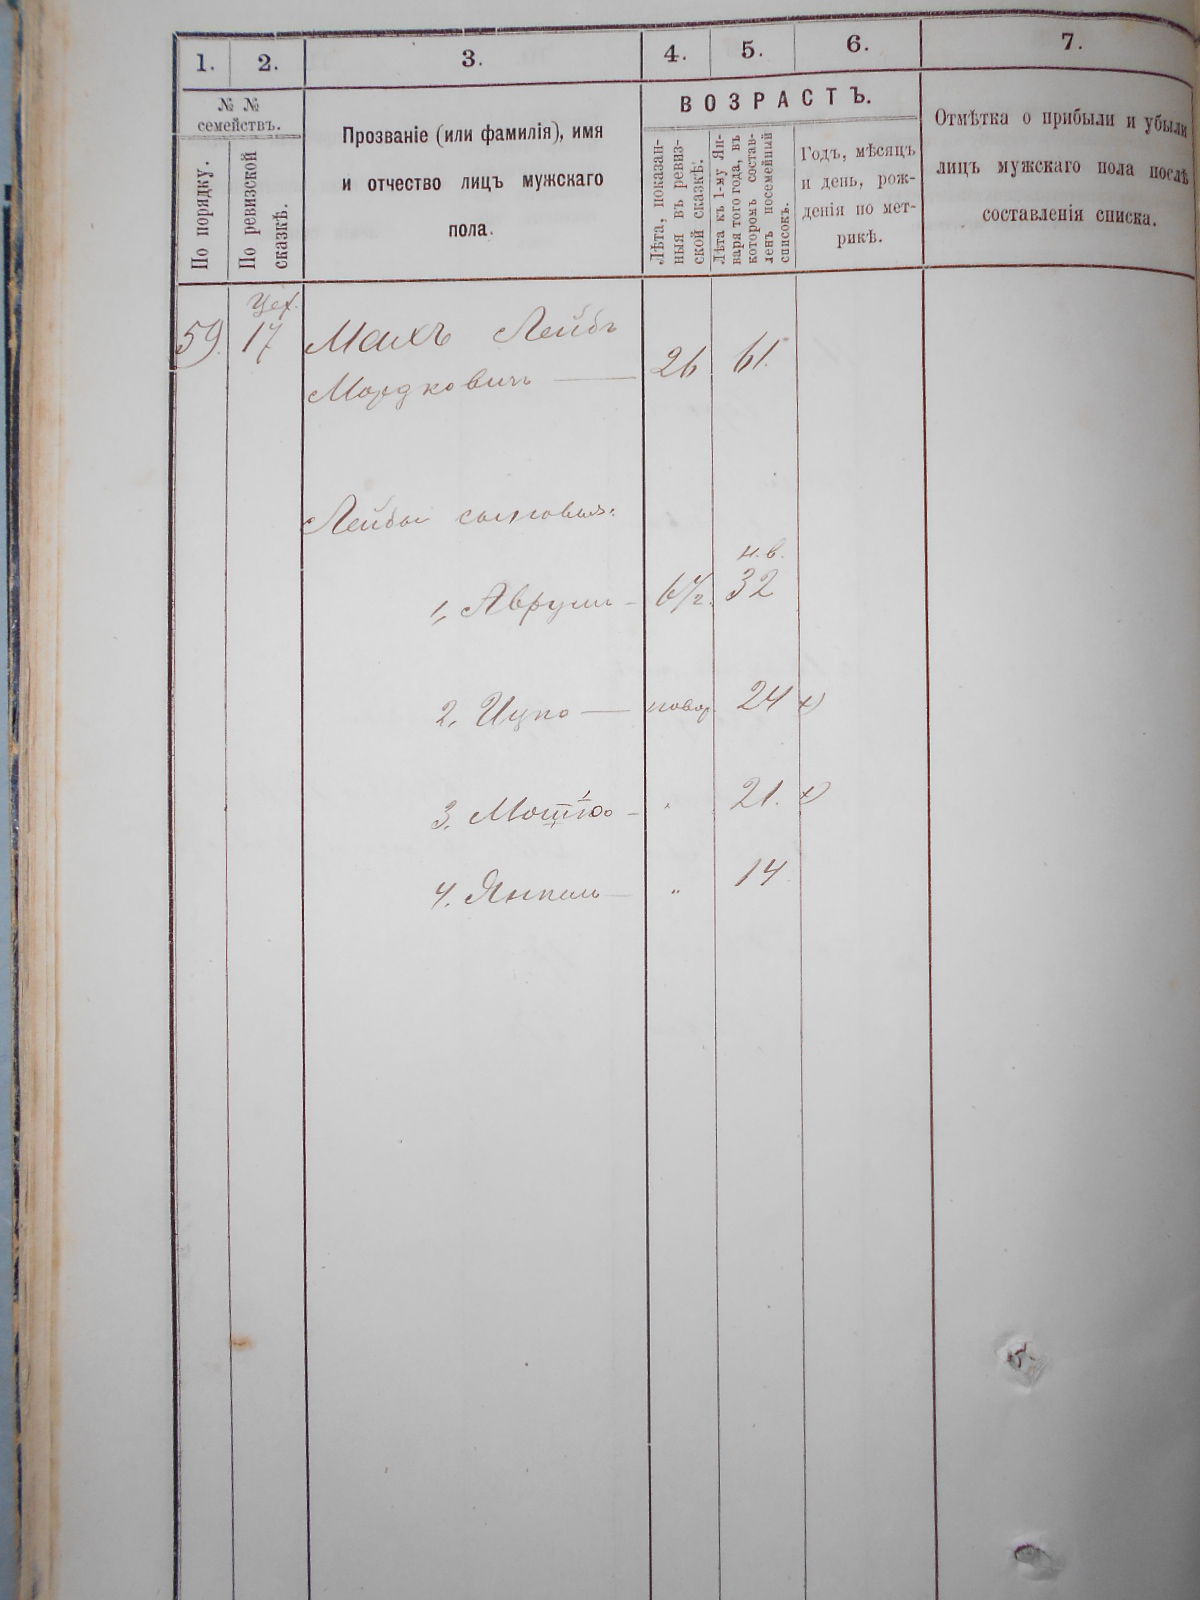 1. 2. 3. 4. 5. 6. 7.
№ №
семействъ.
По порядку.
По ревизской
сказкѣ.
Прозваніе (или фамилія), имя
и отчество лицъ мужскаго
пола.
ВОЗРАСТЪ.
Лѣта, показан-
ныя въ ревиз-
ской сказкѣ.
Лѣта къ 1-му Ян-
варя того года, въ
которомъ состав-
ленъ посемейный
списокъ.
Годъ, мѣсяцъ
и день, рож-
денія по мет-
рикѣ.
Отмѣтка о прибыли и убыли
лицъ мужскаго пола послѣ
составленія списка.
Цех.
59. 17 Махъ Лейбъ
Мордковичъ — 26 61.
Лейбы сыновья:
н.в.
1, Аврум - 6 1/2. 32
2, Ицко — новор. 24 х)
3. Мошко - " 21. х)
4. Янкель — " 14